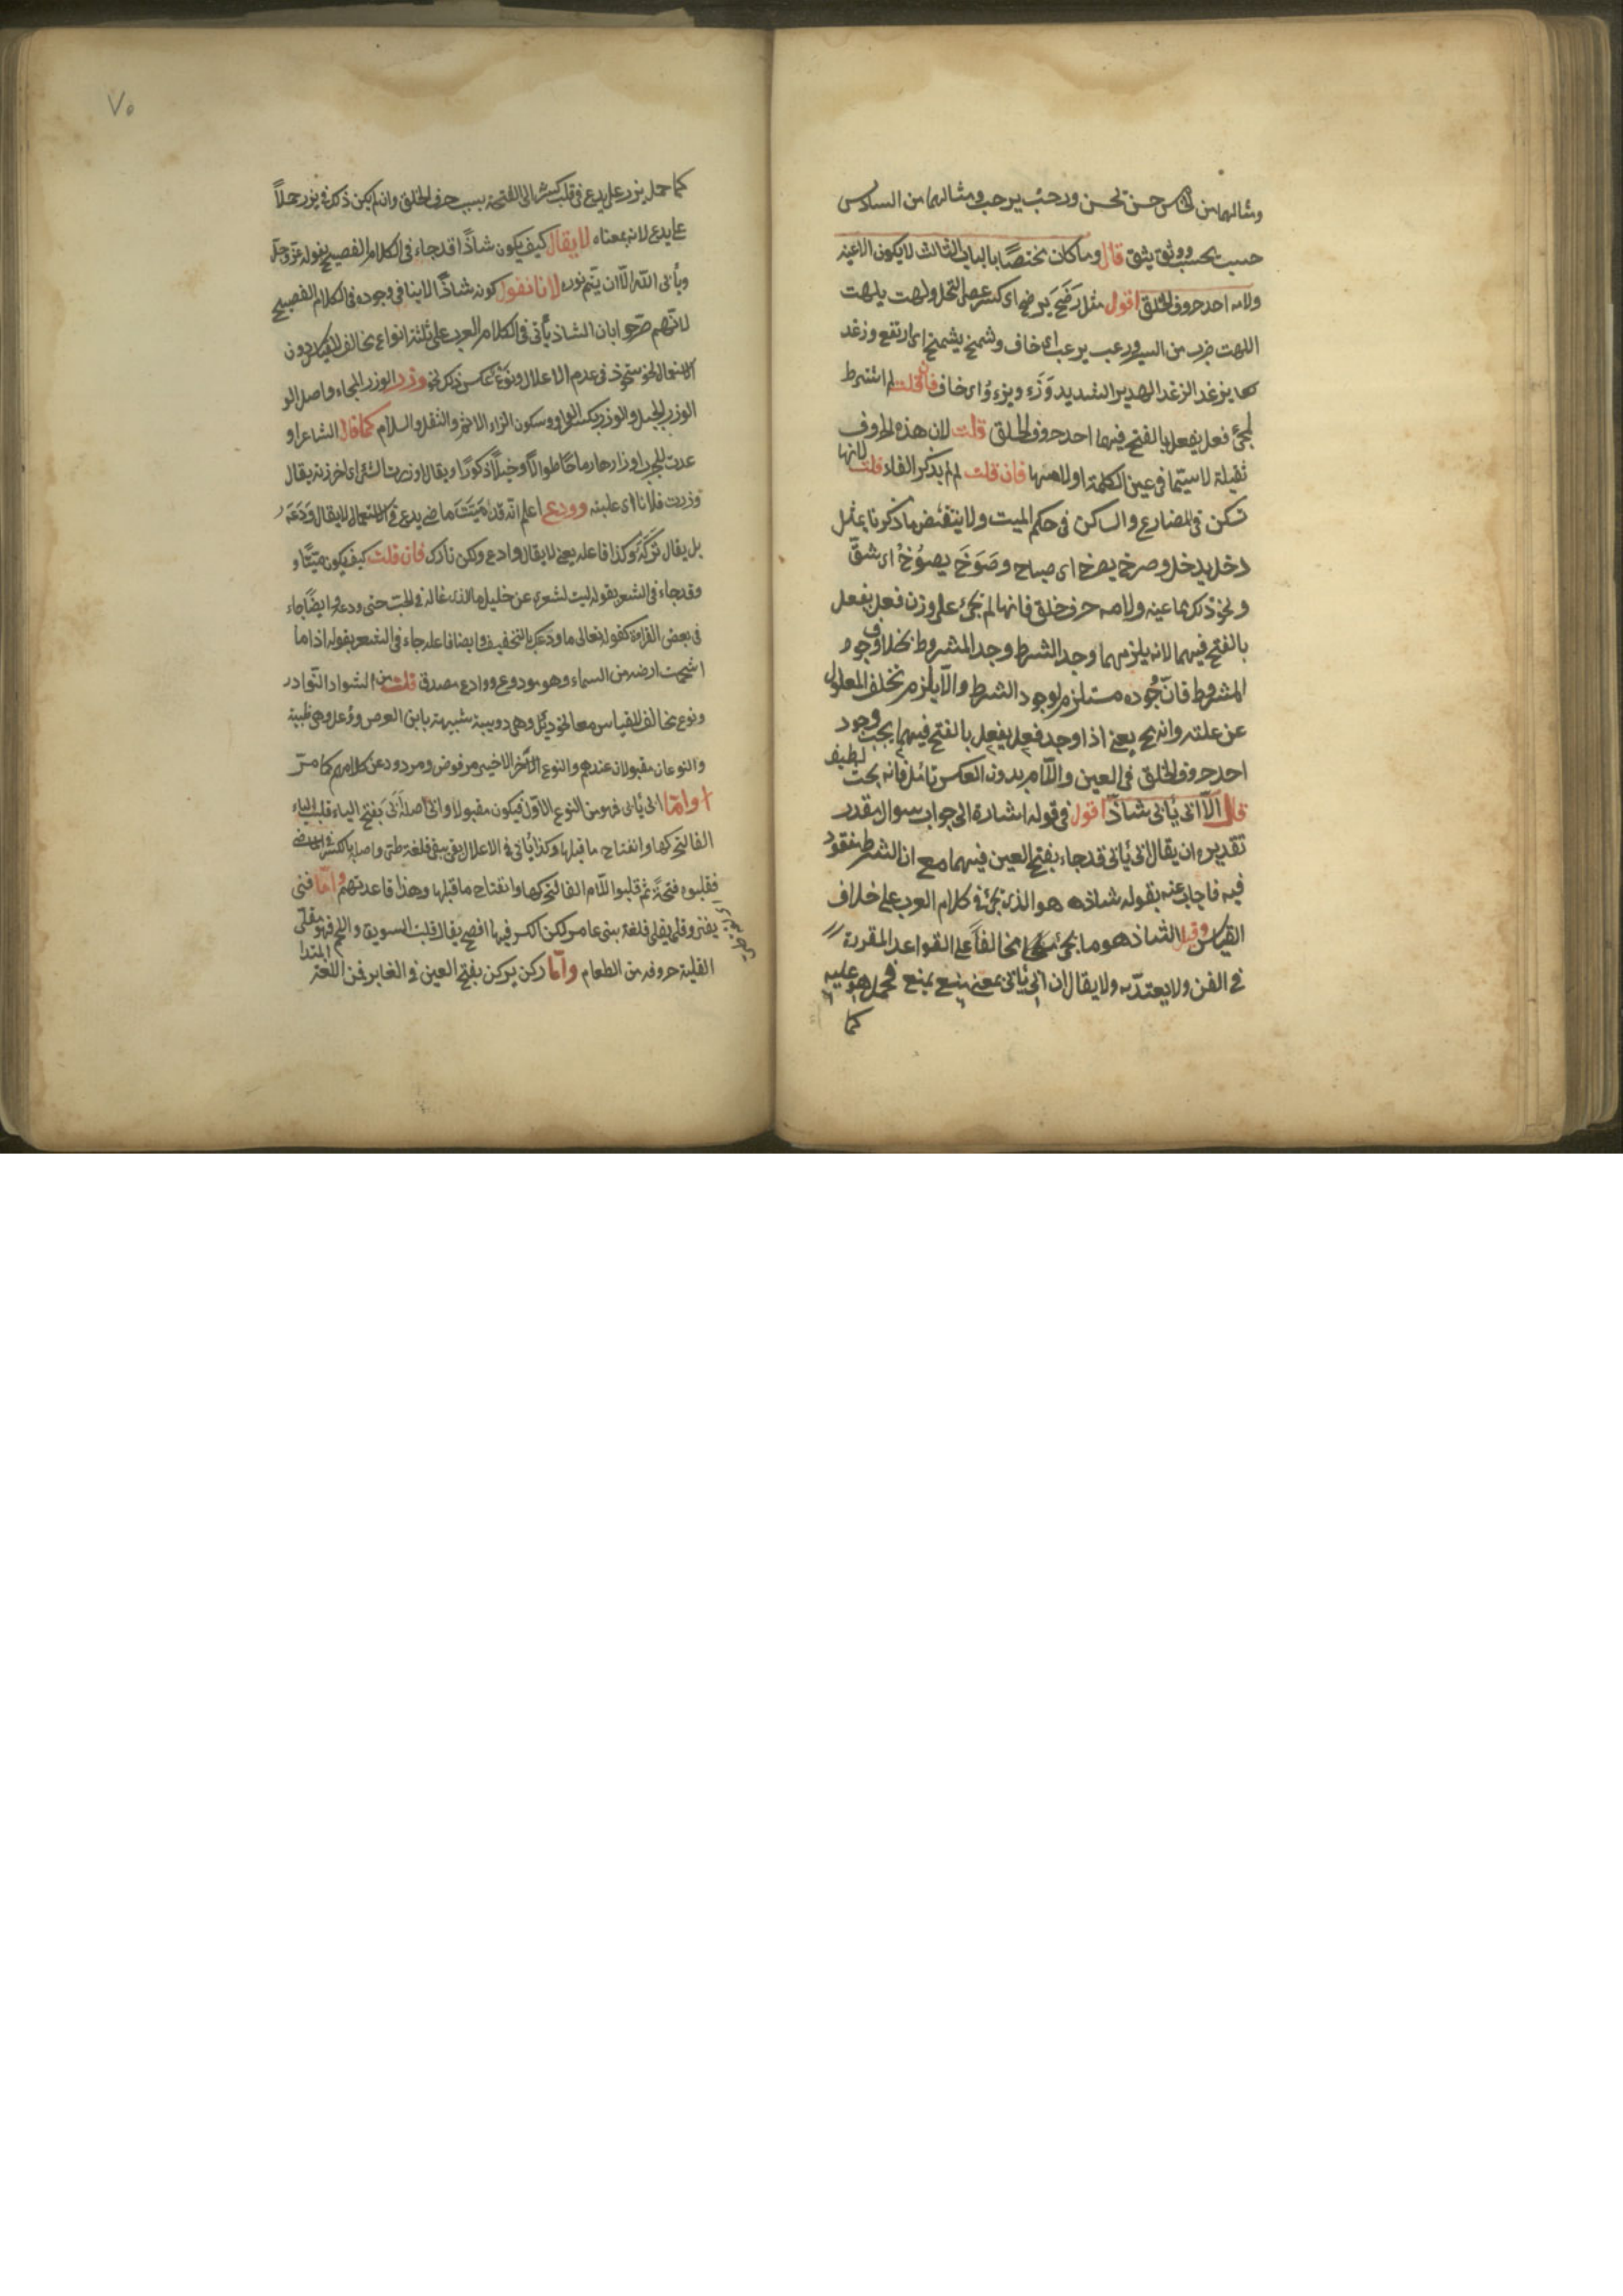 ومثالهما من الخامس حسن يحسن ورحب يرحب ومثالهما من السادس
حسب يحسب ووثق يثق قال وما كان مختصًا بالباب الثالث لا يكون الا عينه
ولامه احد حروف الحلق اقول مثل رضخ يرضخ اى كسر ولهت يلهت
اللهت ضرب من السير ورعب يرعب اى خاف وشمخ يشمخ اى ارتفع وزغد
يزغد الزغد الهدير الشديد اى خاف فان قلت لم اشترط
لمجئ فعل يفعل بالفتح فيهما احد حروف الحلق قلت لان هذه الحروف
ثقيلة لا سيما فى عين الكلمة او لامها فان قلت لم لم يذكر الفاء قلت لانها
تسكن فى المضارع والساكن فى حكم الميت ولا ينتقض ما ذكرنا بمثل
دخل يدخل وصرخ يصرخ اى صاح اى شق
ونحو ذلك مما عينه ولامه حرف حلق فانها لم تجئ على وزن فعل يفعل
بالفتح فيهما لانه يلزمهما وجد الشرط وجد المشروط بخلاف وجود
المشروط فان وجوده مستلزم لوجود الشرط والا يلزم تخلف المعلول
عن علته وانه مح يعنى اذا وجد فعل يفعل بالفتح فيهما يجب وجود
احد حروف الحلق فى العين واللام بدون العكس تامل فانه بحث لطيف
قال الا ابى يأبى شاذ اقول فى قوله اشارة الى جواب سوال مقدر
تقديره ان يقال ابى يأبى قد جاء بفتح العين فيهما مع ان الشرط مفقود
فيه فاجاب عنه بقوله شاذ هو الذى يجئ فى كلام العرب على خلاف
القياس وقيل الشاذ هو ما يجئ مخالفاً على القواعد المقررة
فى الفن ولا يعتد به ولا يقال ان ابى يأبى بمعنى منع يمنع فحمل هو عليه
كما
٧٥
كما حمل يذر على يدع فى قلب كسرتها الى الفتحة بسبب حرف الحلق وان لم يكن ذلك فى يذر حملاً
على يدع لانه بمعناه لا يقال كيف يكون شاذًا قد جاء فى الكلام الفصيح بقوله عز وجل
ويأبى الله الا ان يتم نوره لانا نقول كونه شاذًا لا ينافى وجوده فى الكلام الفصيح
لانهم صرحوا بان الشاذ يأتى فى الكلام العرب على ثلثة انواع مخالف للقياس دون
الاستعمال نحو استحوذ فى عدم الاعلال ونوع عكس ذلك نحو وذر الوزر الملجاء واصل الو
الوزر الجبل والوزر بكسر الواو وسكون الزاء الاثم والثقل والسلام كما قال الشاعر او
عدت للحرب اوزارها رماحًا طوالاً وخيلاً ذكورًا ويقال اوزرت الشئ اى احرزته يقال
وزرت فلانا اى غلبته وودع اعلم انه قد اميتت ماضى يدع فى الاستعمال لا يقال ودعه
بل يقال تركه وكذا فاعله يعنى لا يقال وادع ولكن تارك فان قلت كيف يكون ميتًا و
وقد جاء فى الشعر بقوله ليت شعرى عن خليلى ما الذى غاله فى الحب حتى ودعه وايضًا جاء
فى بعض القراءة كقوله تعالى ما ودعك بالتخفيف وايضا فاعله جاء فى الشعر بقوله اذا ما
استحمت ارضه من السماء وهو مودوع ووادع مصدق قلت من الشواذ النوادر
ونوع مخالف للقياس معا نحو دئل وهى دويبة شبيهة بابن العرس ووعل وهى ظبية
والنوعان مقبولان عندهم والنوع الاخر الاخيرى مرفوض ومردود عن كلامهم كما مر
واما ابى يأبى فهو من النوع الاول فيكون مقبولا وابى اصله ابى بفتح الياء قلبت الياء
الفا لتحركها وانفتاح ما قبلها وكذا يأبى فى الاعلال بقى يبقى فلغة طى واصلها بالكسر فى الماضى
فقلبوه فتحةً ثم قلبوا اللام الفا لتحركها وانفتاح ما قبلها وهذا قاعدتهم واما فنى
يفنى وقلى يقلى فلغة بنى عامر لكن الكسر فيها افصح يقال قليت السويق واللحم فهو مقلى
القلية حروفه من الطعام واما ركن يركن بفتح العين فى الغابر فمن اللغة